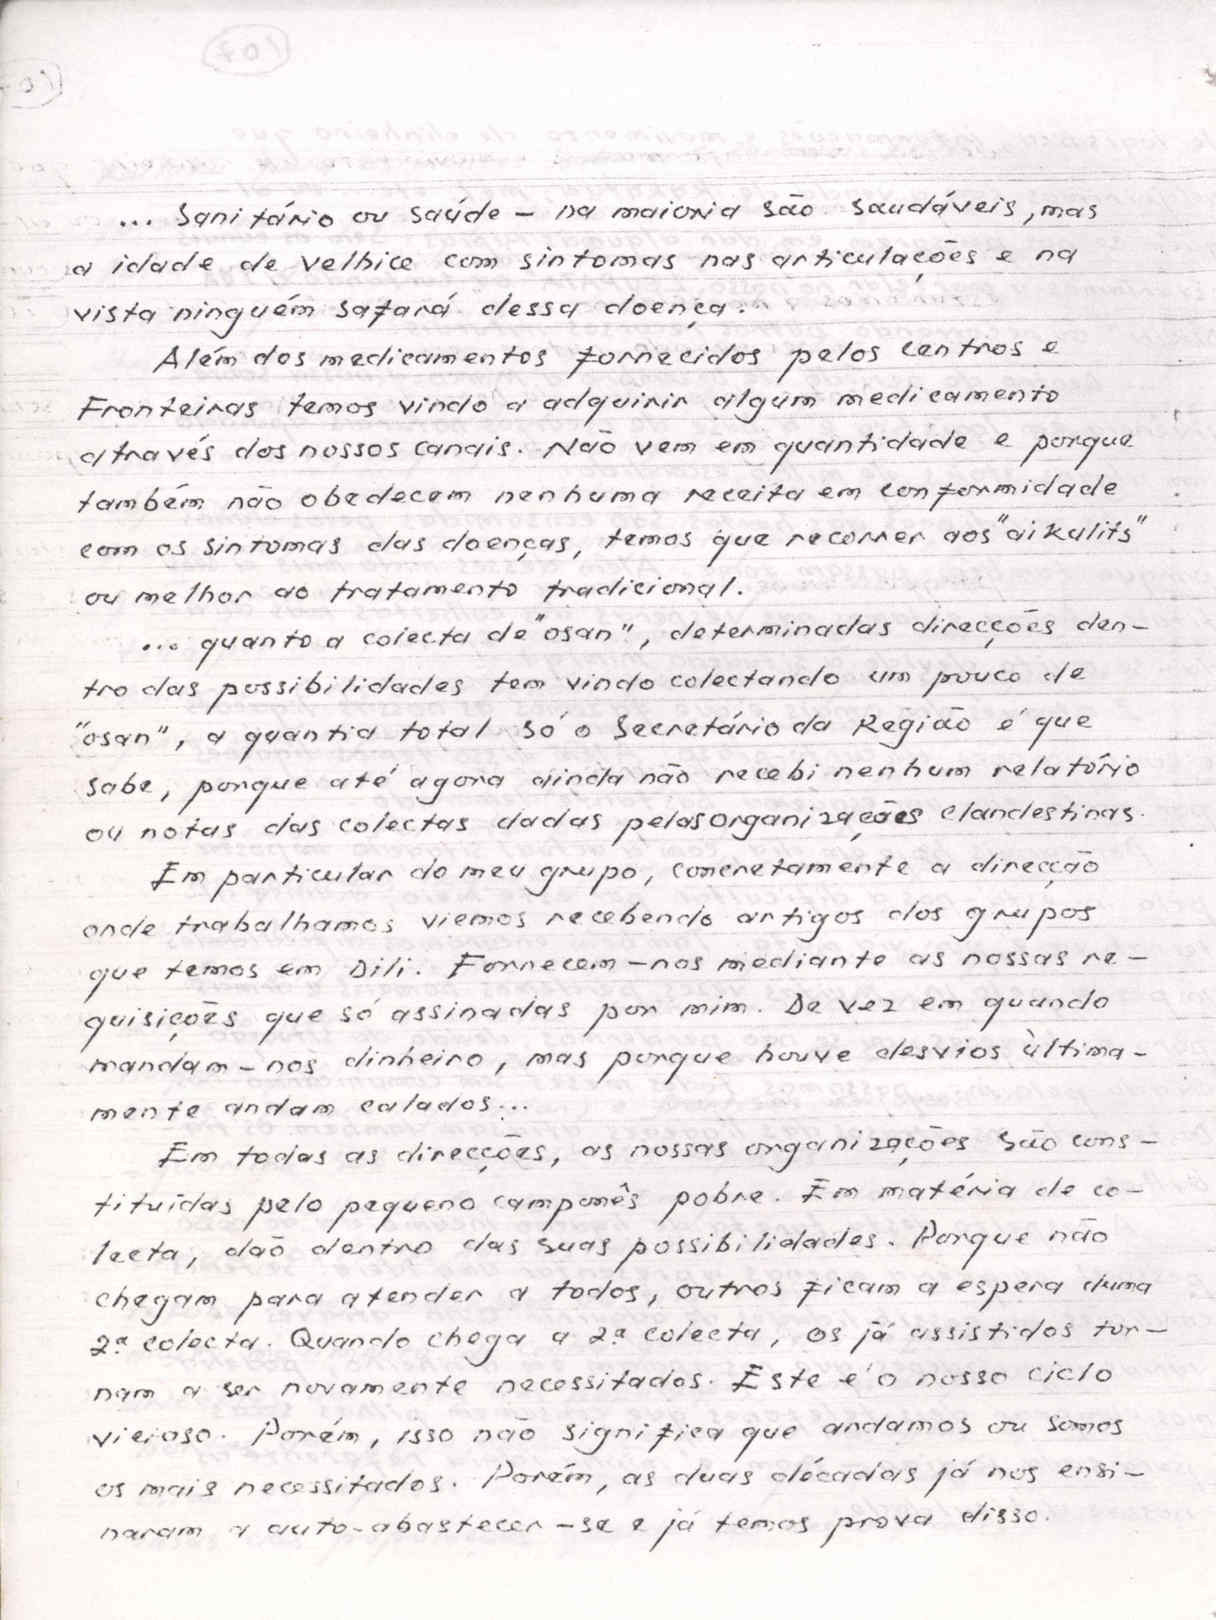 ... Sanitário ou saúde - na maioria são saudáveis, mas
a idade de velhice com sintomas nas articulações e na
vista ninguém safará dessa doença.
Além dos medicamentos fornecidos pelos centros e
Fronteiras temos vindo a adquirir algum medicamento
através dos nossos canais. Não vem em quantidade e porque
também não obedecem nenhuma receita em conformidade
com os sintomas das doenças, temos que recorrer aos "aikulits"
ou melhor ao tratamento tradicional.
... quanto a colecta de "osan", determinadas direcções den-
tro das possibilidades tem vindo colectando um pouco de
"osan", a quantia total só o Secretário da Região é que
sabe, porque até agora ainda não recebi nenhum relatório
ou notas das colectas dadas pelas organizações clandestinas.
Em particular do meu grupo, concretamente a direcção
onde trabalhamos viemos recebendo artigos dos grupos
que temos em Dili. Fornecem-nos mediante as nossas re-
quisições que só assinadas por mim. De vez em quando
mandam-nos dinheiro, mas porque houve desvios ùltima-
mente andam calados...
Em todas as direcções, as nossas organizações são cons-
tituídas pelo pequeno camponês pobre. Em matéria de co-
lecta, daõ dentro das suas possibilidades. Porque não
chegam para atender a todos, outros ficam a espera duma
2ª colecta. Quando chega a 2ª colecta, os já assistidos tor-
nam a ser novamente necessitados. Este é o nosso ciclo
vicioso. Porém, isso não significa que andamos ou somos
os mais necessitados. Porém, as duas décadas já nos ensi-
naram a auto-abastecer-se e já temos prova disso.